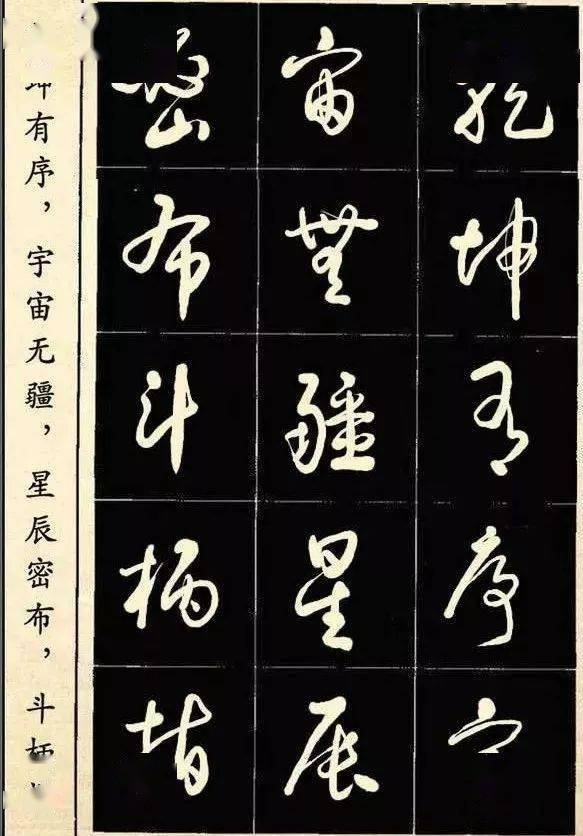 乾坤有序宇
宙無疆星辰
密布斗柄指
坤有序，宇宙无疆，星辰密布，斗柄